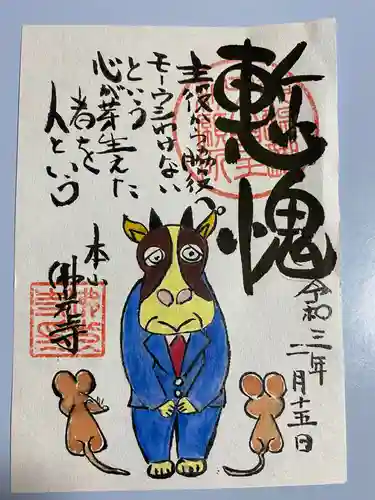 慙愧
主役から脇役
モーウシわけない
という
心が芽生えた
者を
人という
本山
佛光寺
令和三年
一月十五日